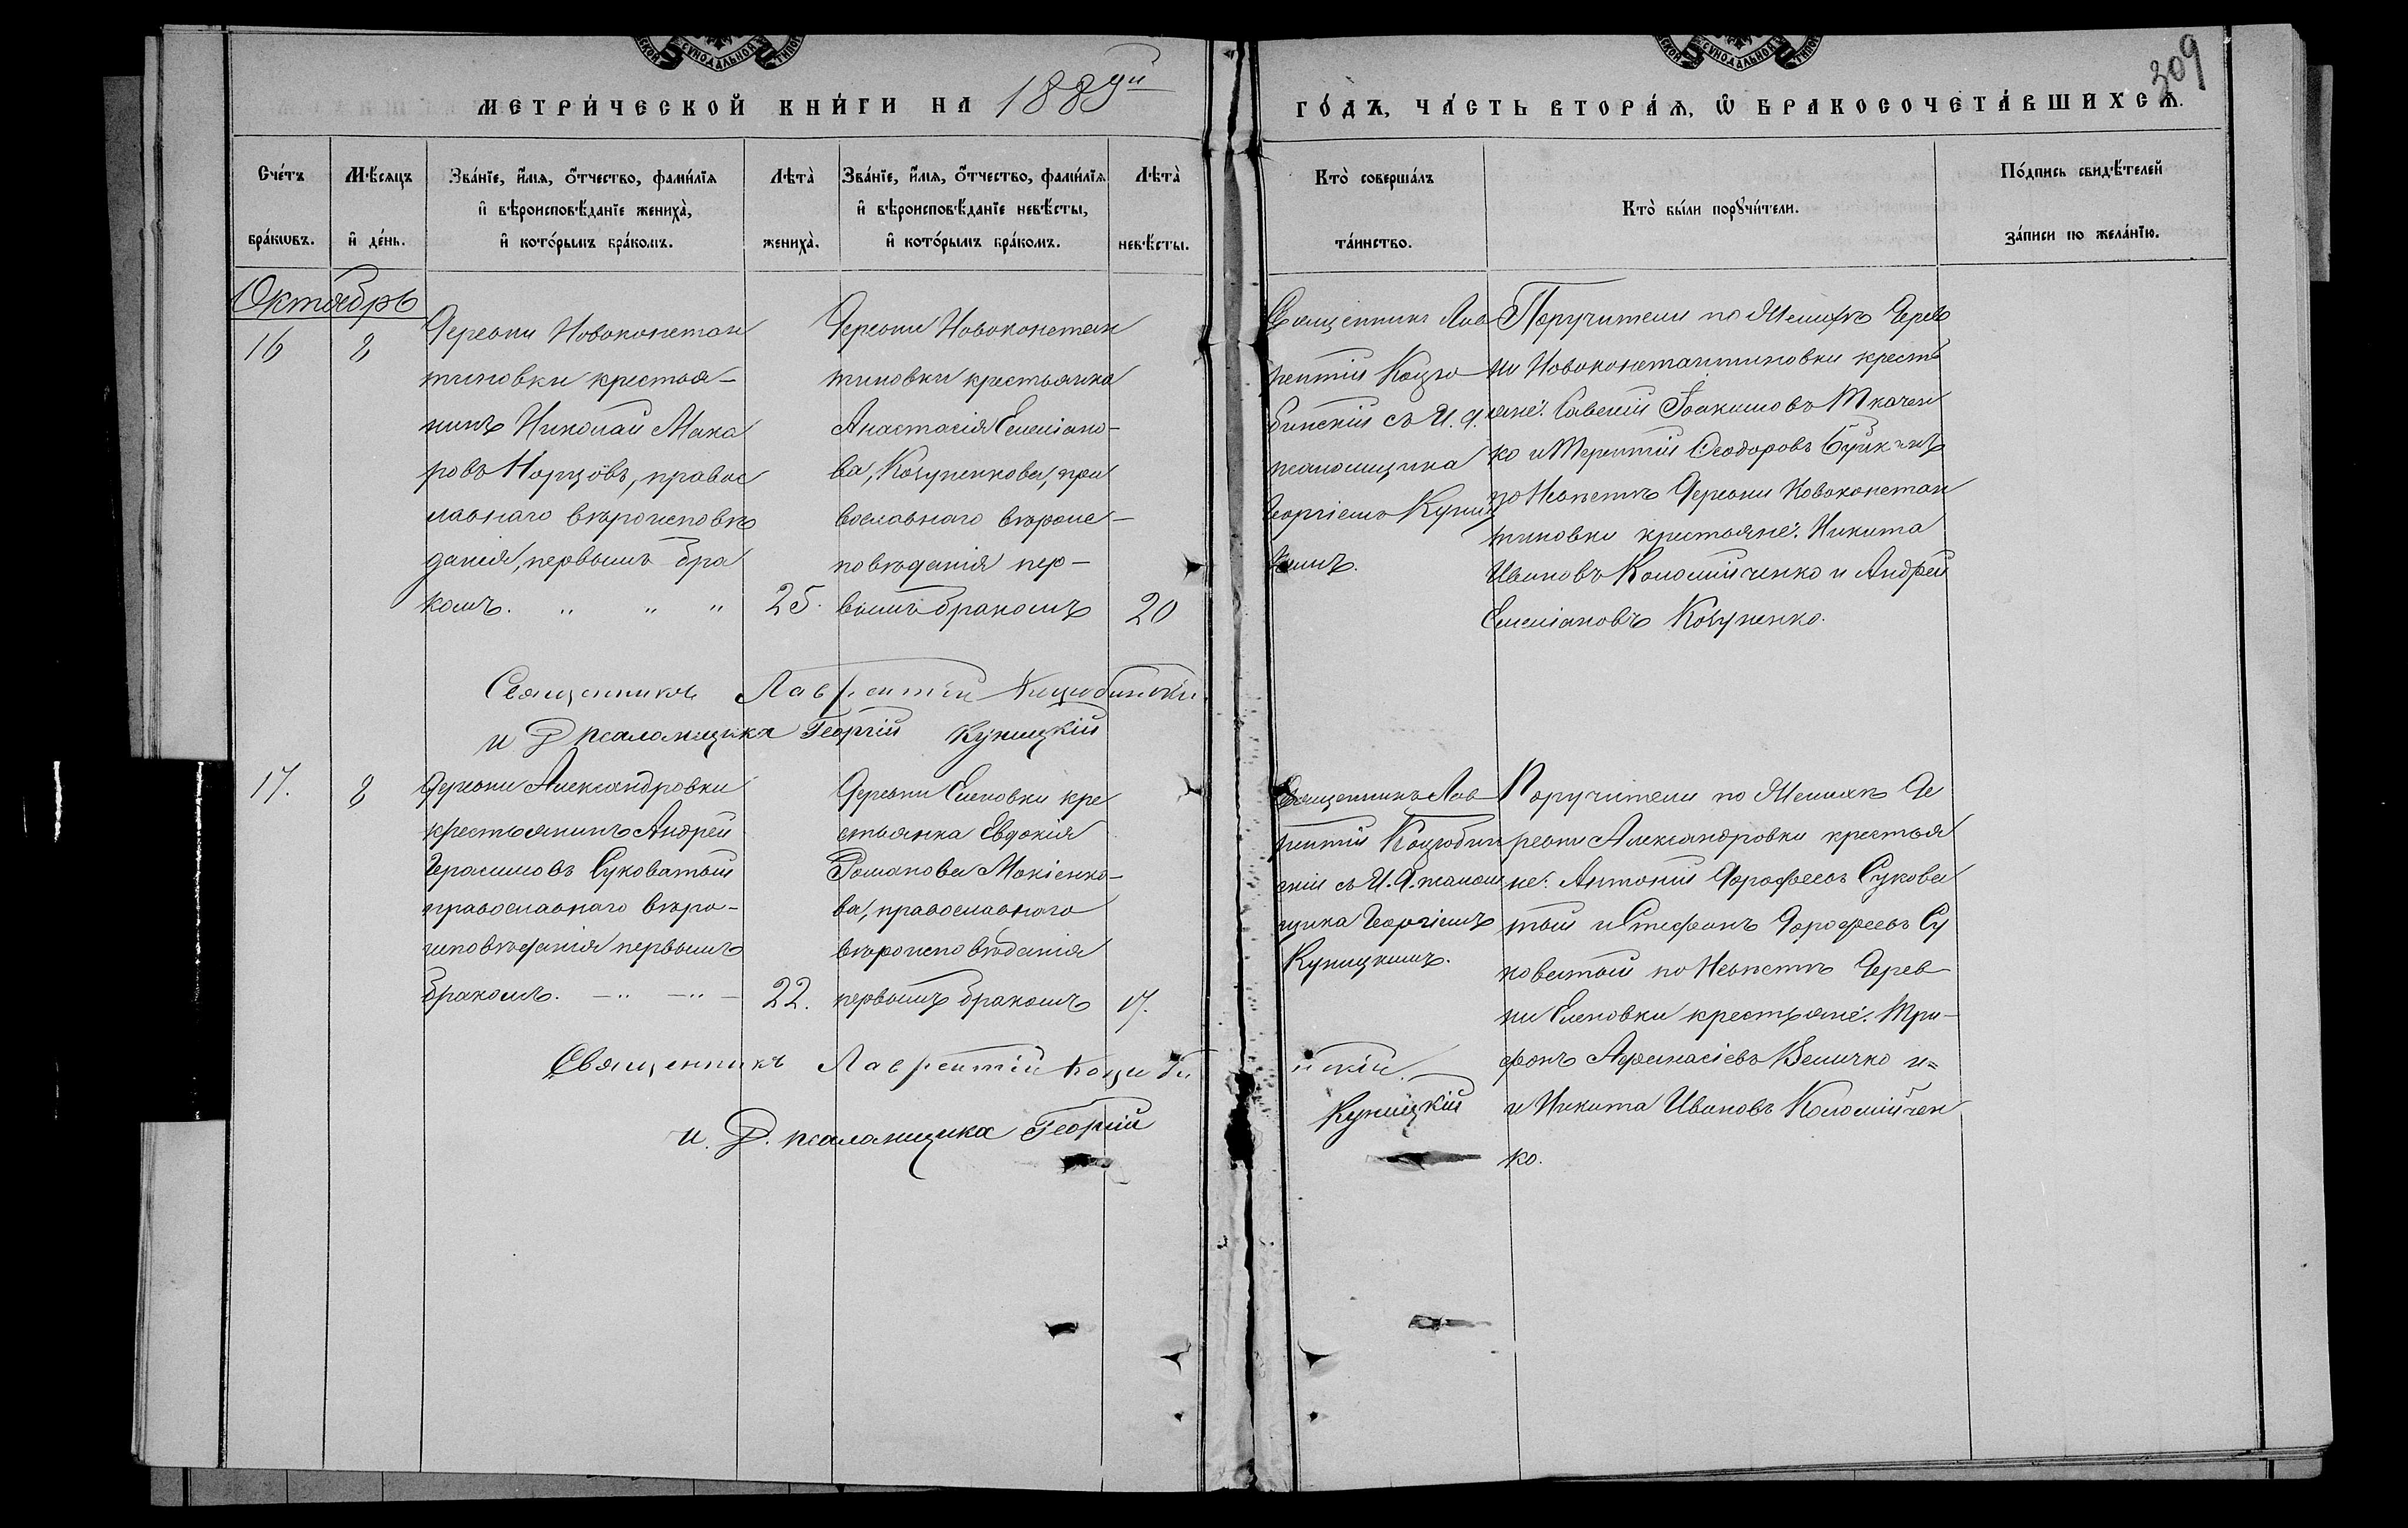 МЕТРИ́ЧЕСКОЙ КНИ́ГИ НА 1889й
ГО́ДЪ, ЧА́СТЬ ВТОРА́Я, Ѡ БРАКОСОЧЕТА́ВШИХСЯ.
309
Сче́тъ бра́кѡвъ.
Мѣ́сяцъ и҆ де́нь.
Зва́нїе, и҆́мя, ѻ҆́тчество, фами́лїя
и҆ вѣроисповѣ́данїе жениха̀,
и҆ кото́рымъ бра́комъ.
Лѣта̀ жениха̀.
Зва́нїе, и҆́мя, ѻ҆́тчество, фами́лїя
и҆ вѣроисповѣ́данїе невѣ́сты,
и҆ кото́рымъ бра́комъ.
Лѣта̀ невѣ́сты.
Кто̀ соверша́лъ
та́инство.
Кто̀ бы́ли порꙋчи́тели.
По́дпись свидѣ́телей
за́писи по жела́нїю.
Октябрь
16
8
Деревни Новоконстан
тиновки крестья-
нинъ Николай Мака
ровъ, правос
лавнаго вѣроисповѣ
данія, первымъ бра
комъ. " " "
25.
Деревни Новоконстан
тиновки крестьянка
Анастасія Емеліано-
ва, Кочупенкова, пра
вославнаго вѣроис-
повѣданія пер-
вымъ бракомъ
20
Священникъ Лав
рентій Коцю
бинскій съ И. д.
псаломщика
Георгіемъ Куниц
кимъ.
Поручители по Женихѣ Дерев
ни Новоконстантиновки кресть
яне: Савелій Іоакимовъ Ткачен
ко и Терентій Ѳеодоровъ
по Невѣстѣ Деревни Новоконстан
тиновки крестьяне: Никита
Ивановъ Коломійченко и Андрей
Емеліановъ Кочупенко.
Священникъ Лаврентій Коцюбинскій
и Д псаломщика Георгій Куницкій
17.
8
Деревни Александровки
крестьянинъ Андрей
Герасимовъ Суковатый
православнаго вѣро-
исповѣданія первымъ
бракомъ. - " - " -
22.
Деревни Еленовки кре
стьянка Евдокія
Романова Мокіенко-
ва, православнаго
вѣроисповѣданія
первымъ бракомъ
17.
Священникъ Лав
рентій Коцюбин
скій съ И. Д. псалом
щика Георгіемъ
Куницкимъ.
Поручители по Женихѣ Де
ревни Александровки крестья
не: Антоній Дорофеевъ Сукова
тый и Стефанъ Дорофеевъ Су
коватый по Невѣстѣ Дерев
ни Еленовки крестьяне: Три-
фонъ Афанасіевъ Величко и=
и Никита Ивановъ Коломійчен
ко.
Священникъ Лаврентій Коцюбинскій.
и. Д. псаломщика Георгій Куницкій